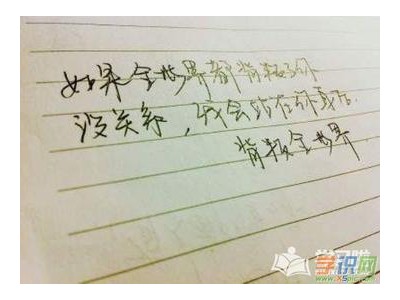 如果全世界都背叛了你
没关系,我会站在你身后
背叛全世界
学识网